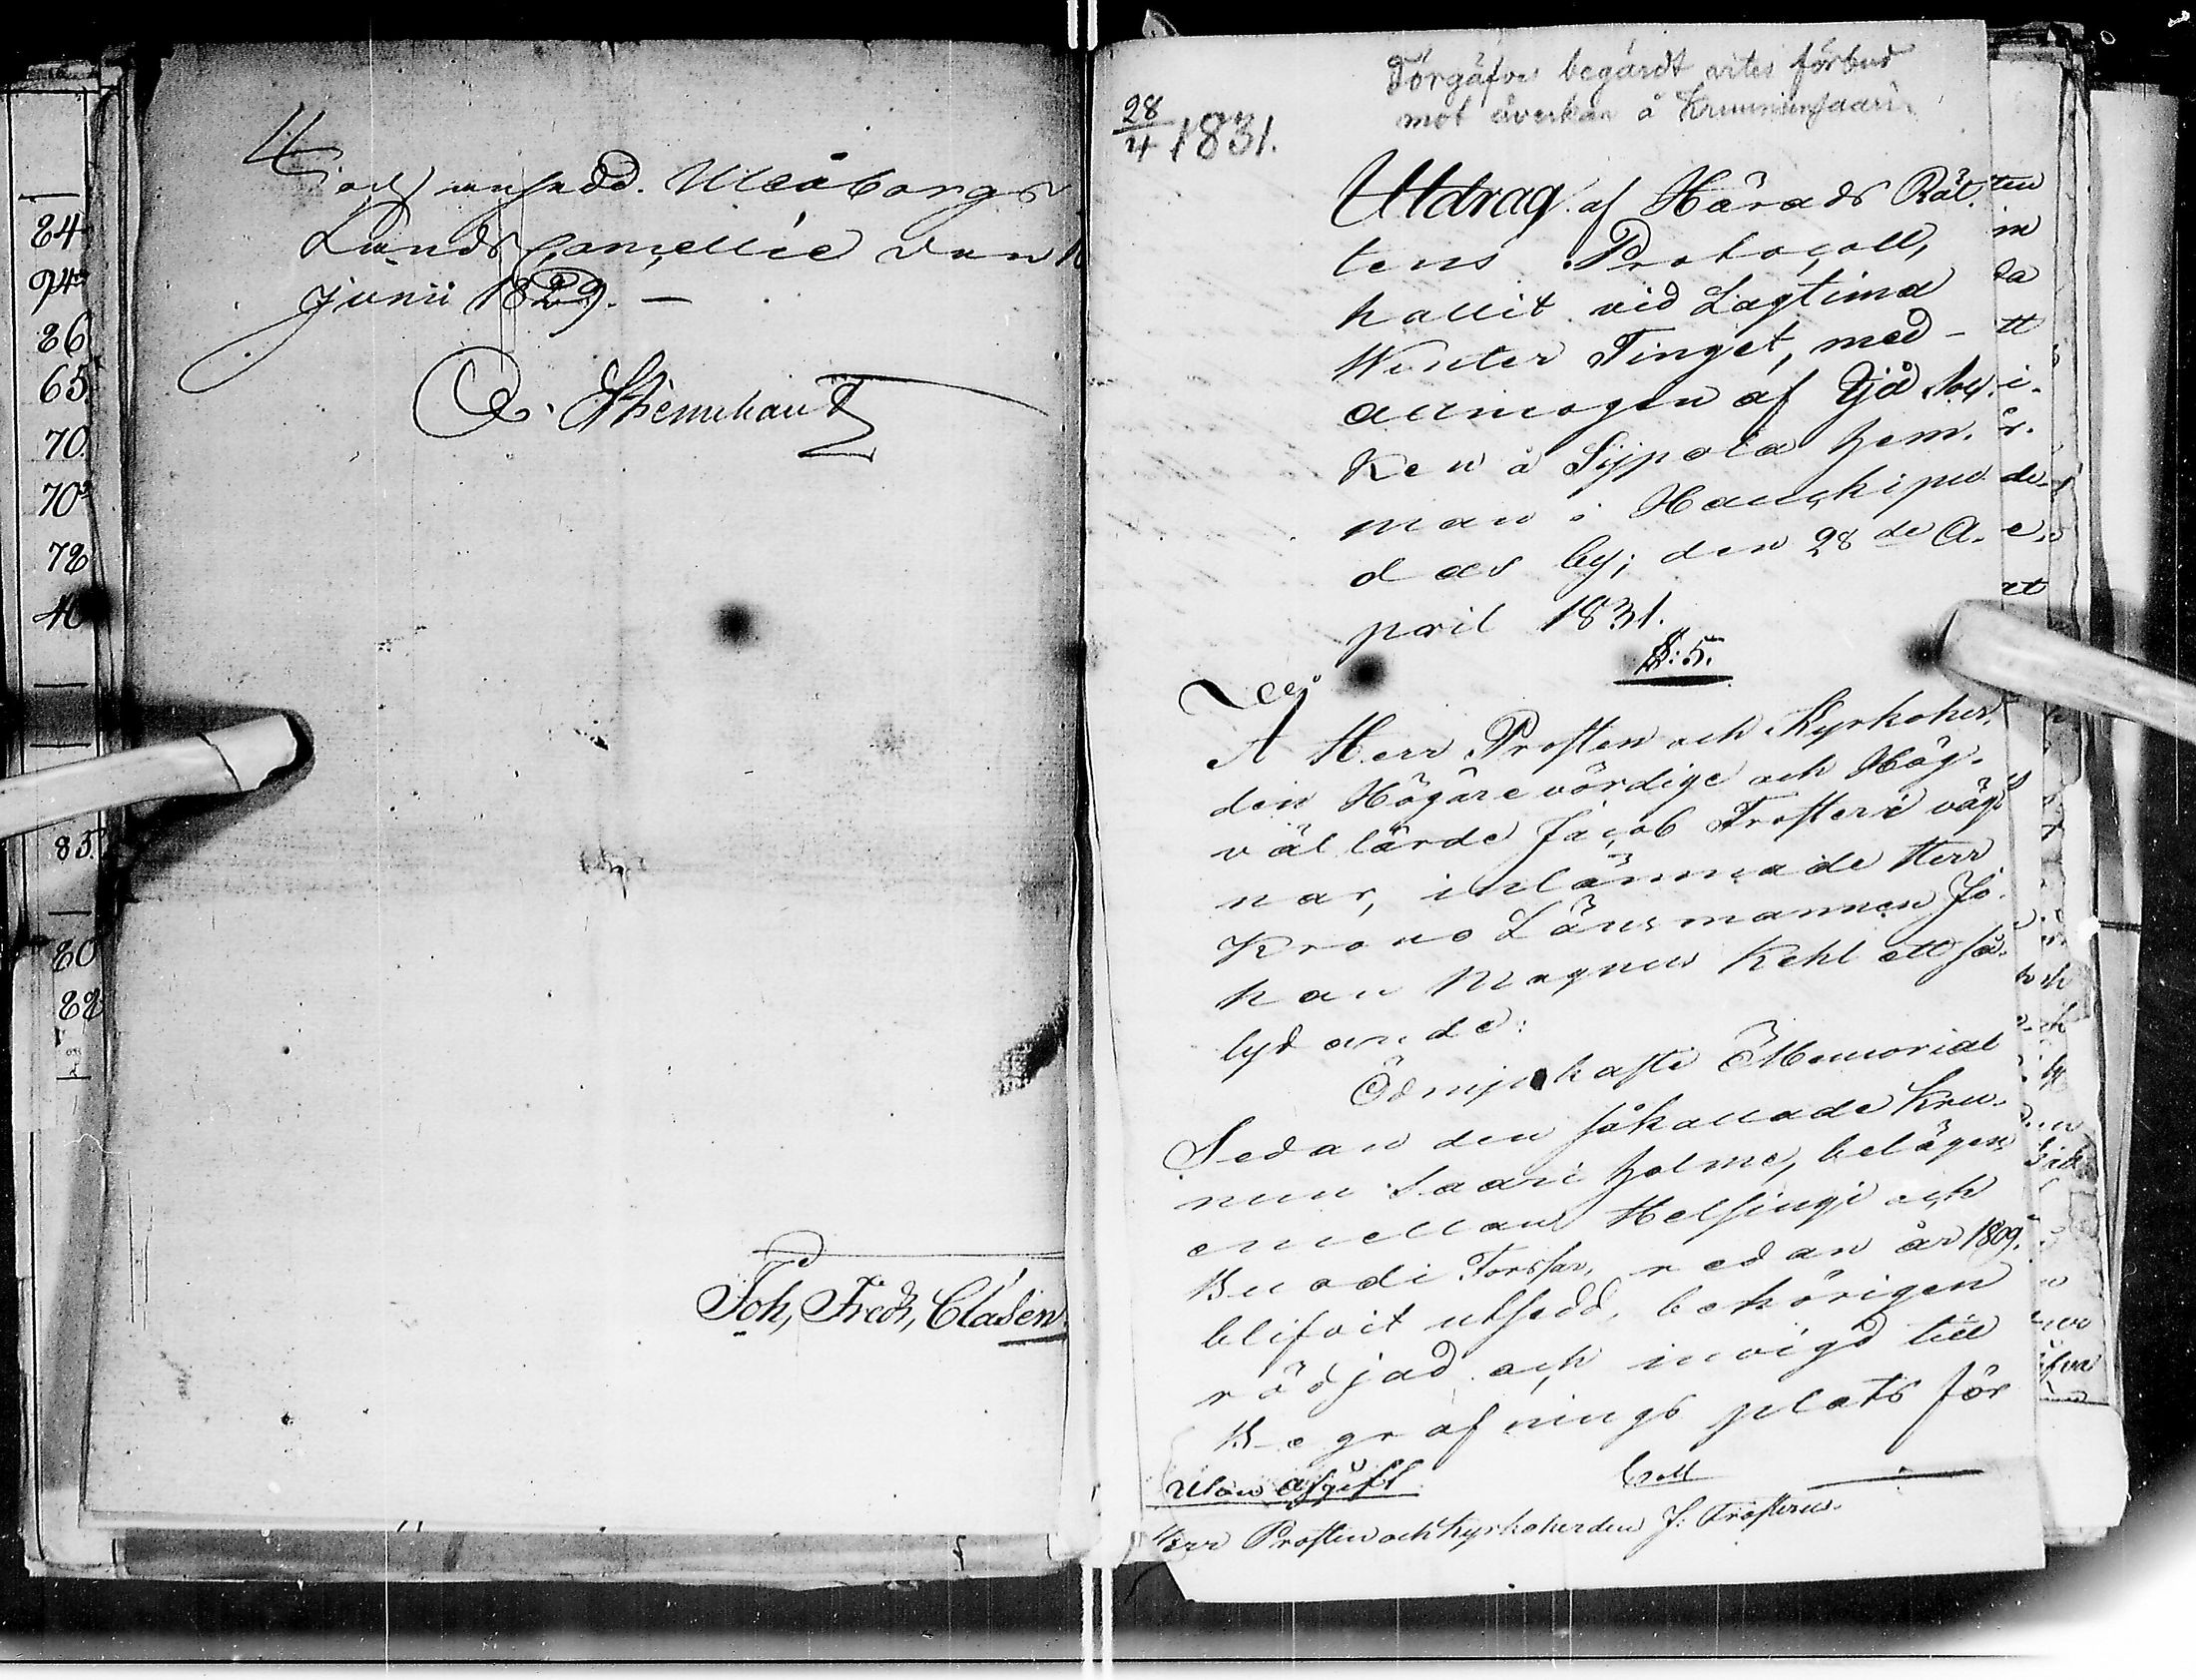 84
94
86
65.
70.
70
78
40
85.
80
88
Uleåborgs
Lands Cancellie den
Junii 1829. —
Joh, Fredr, Clasen
28/4 1831.
Förgäfves begärdt vites förbud
mot åverkan å Krunnunsaari
Utdrag af Härads Rät-
tens Protocoll,
hållit vid Lagtima
Winter Tinget, med
allmogen af Ijå Soc-
ken å Sÿpola hem-
man i Haukipu-
das by; den 28de A-
pril 1831.
§: 5.
A Herr Prosten och Kyrkoher-
den Högärevördige och Hög-
vällärde Jacob Frosteri väg-
nar, inlämnade Herr
Krono Länsmannen Jo-
han Magnus Kehl ett så-
lydande:
Ödmjukaste Memorial
Sedan den såkallade Kru-
nun Saari holme, belägen
emellan Helsingi och
Kuodi Forssar, redan år 1809.
blifvit utsedd, behörigen
rödjad och invigd till
Begrafnings plats för
Utan afgift
Herr Prosten och Kyrkoherden J: Frosterus.